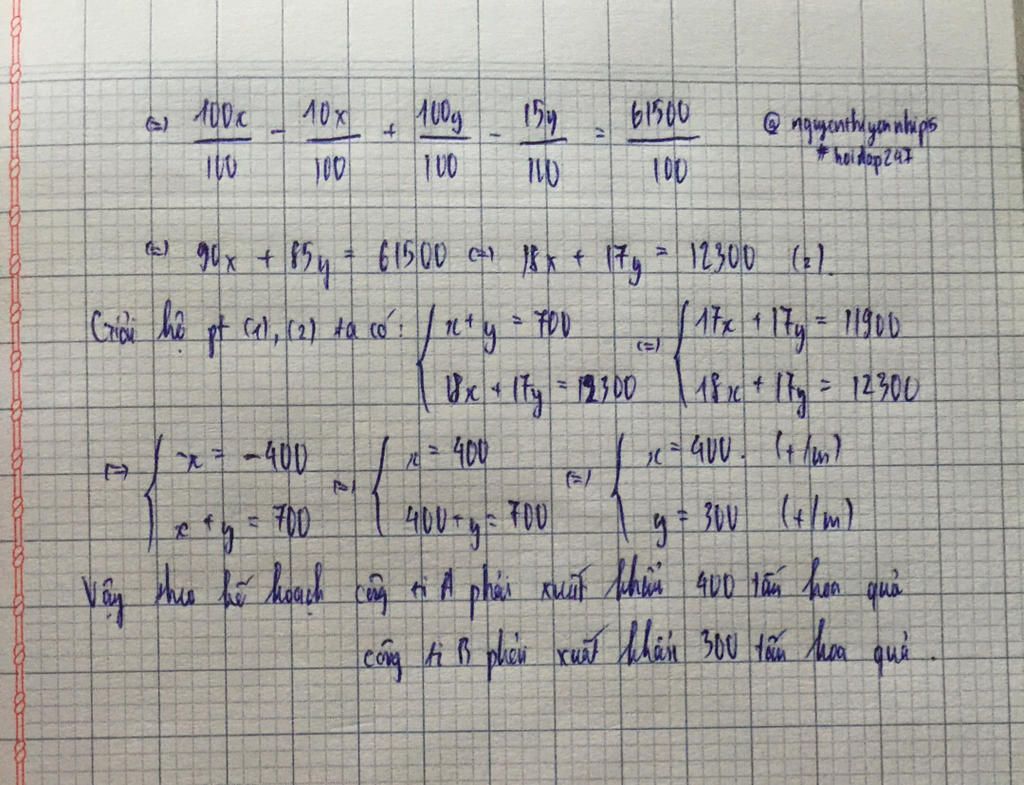 ⇔ 100x/100 - 10x/100 + 100y/100 - 15y/100 = 61500/100 @ nguyenthiyennhip5
# hoidap247
⇔ 90x + 85y = 61500 ⇔ 18x + 17y = 12300 (2).
Giải hệ pt (1), (2) ta có: { x + y = 700 ⇔ { 17x + 17y = 11900
18x + 17y = 12300 18x + 17y = 12300
⇔ { -x = -400 ⇔ { x = 400 ⇔ { x = 400. (t/m)
x + y = 700 400 + y = 700 y = 300 (t/m)
Vậy theo kế hoạch công ti A phải xuất khẩu 400 tấn hoa quả
công ti B phải xuất khẩu 300 tấn hoa quả.